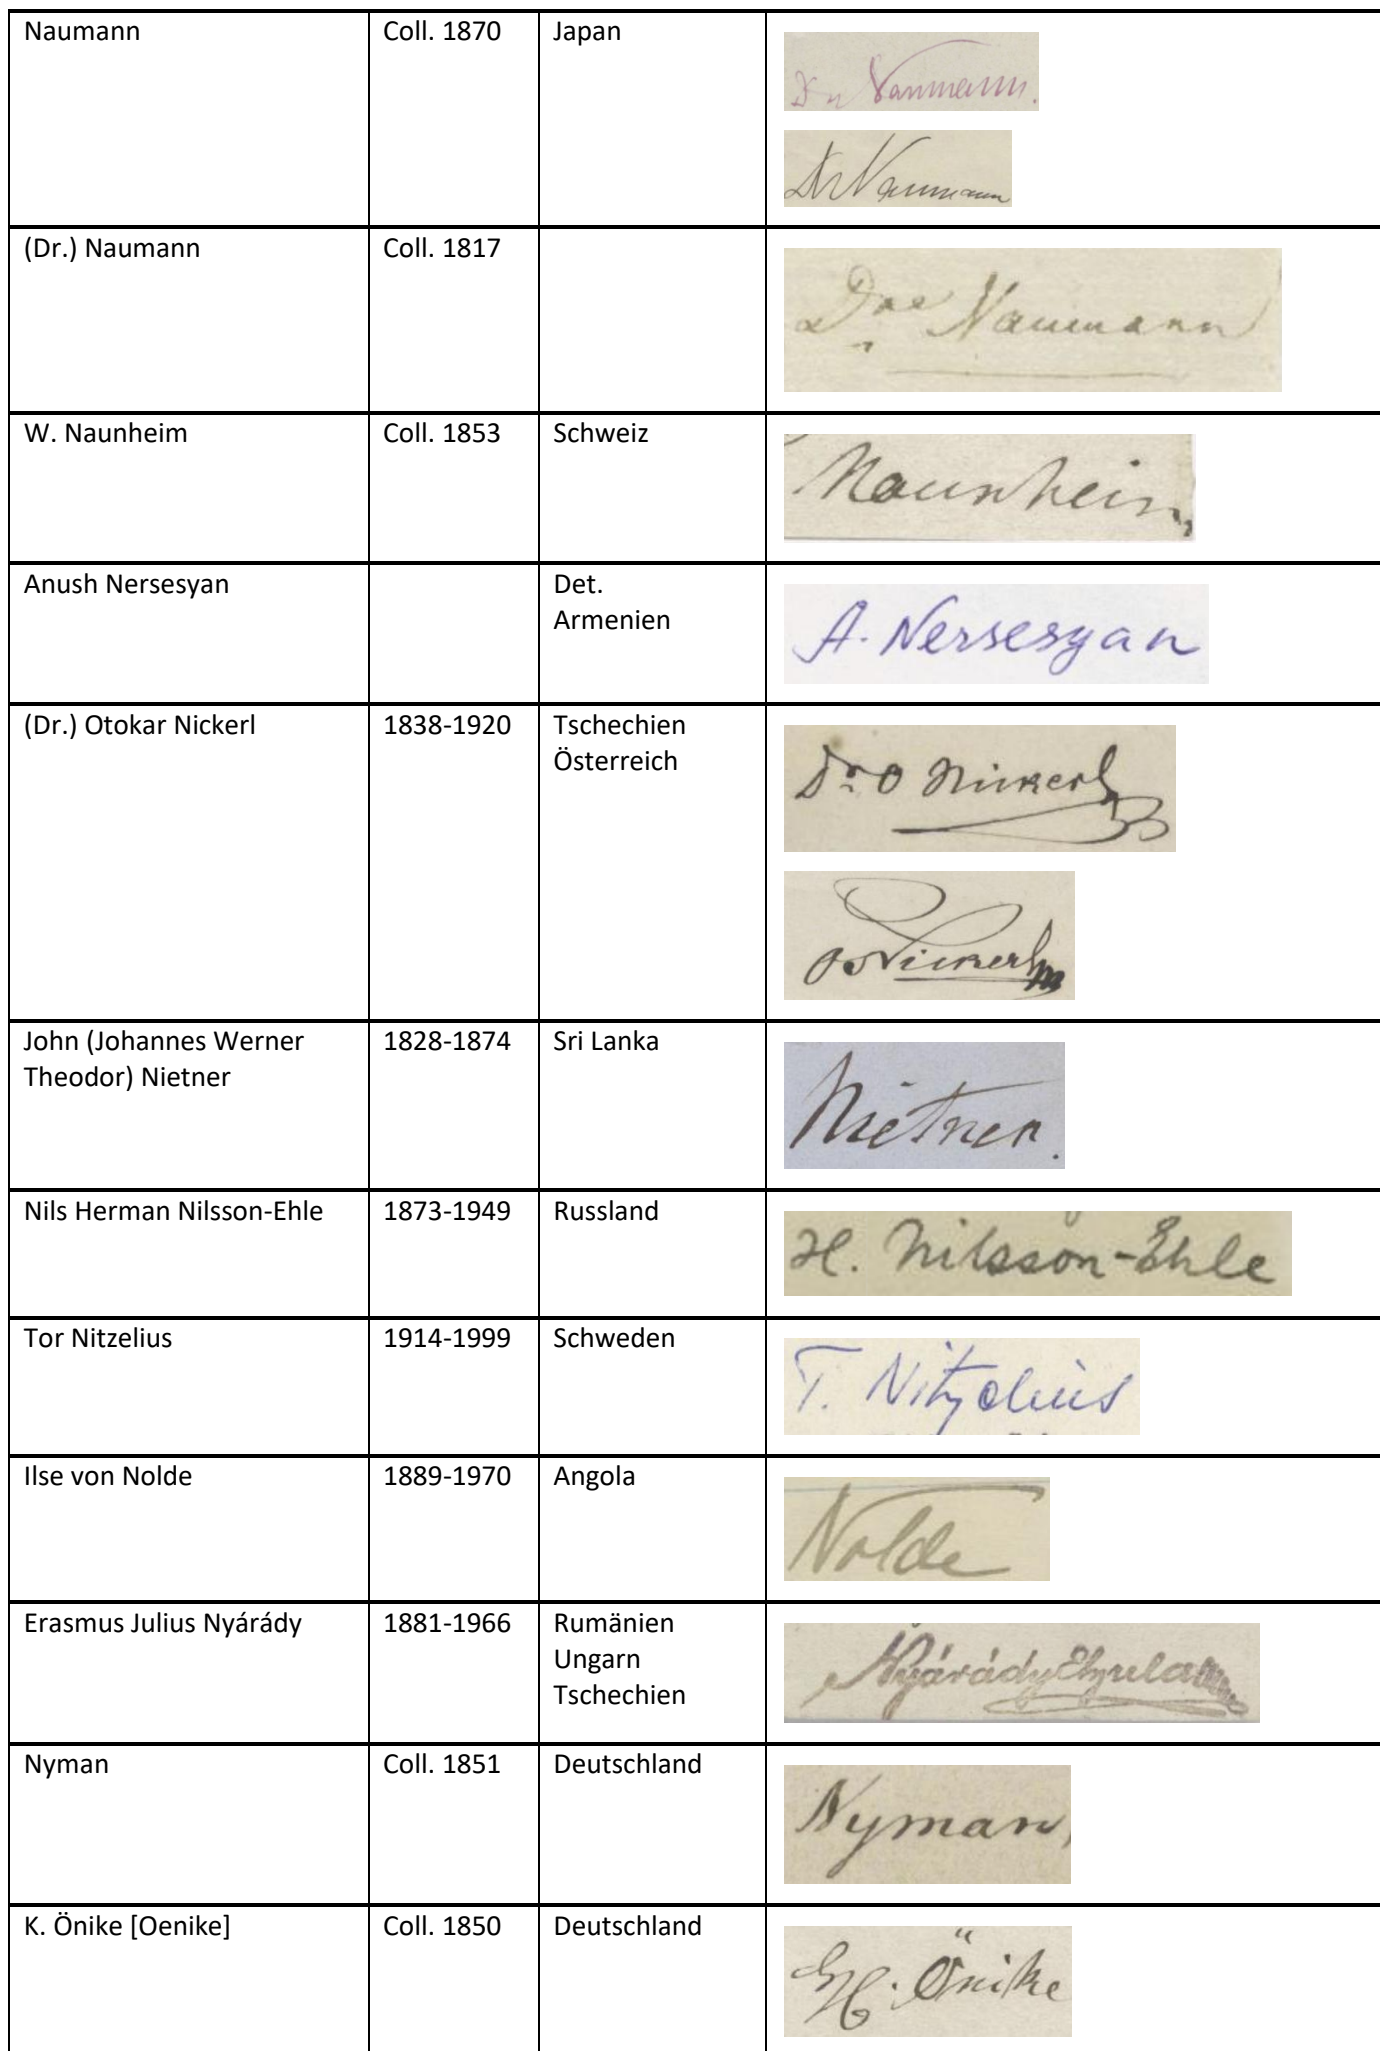 Naumann Coll. 1870 Japan
Dr Naumann.
Dr Naumann
(Dr.) Naumann Coll. 1817
Dre Naumann
W. Naunheim Coll. 1853 Schweiz
Naunheim
Anush Nersesyan Det.
Armenien
A. Nersesyan
(Dr.) Otokar Nickerl 1838-1920 Tschechien
Österreich
Dr. O Nickerl
O Nickerl
John (Johannes Werner 1828-1874 Sri Lanka
Theodor) Nietner
Nietner.
Nils Herman Nilsson-Ehle 1873-1949 Russland
H. Nilsson-Ehle
Tor Nitzelius 1914-1999 Schweden
T. Nitzelius
Ilse von Nolde 1889-1970 Angola
Nolde
Erasmus Julius Nyárády 1881-1966 Rumänien
Ungarn
Tschechien
Nyárády
Nyman Coll. 1851 Deutschland
Nyman
K. Önike [Oenike] Coll. 1850 Deutschland
Önike